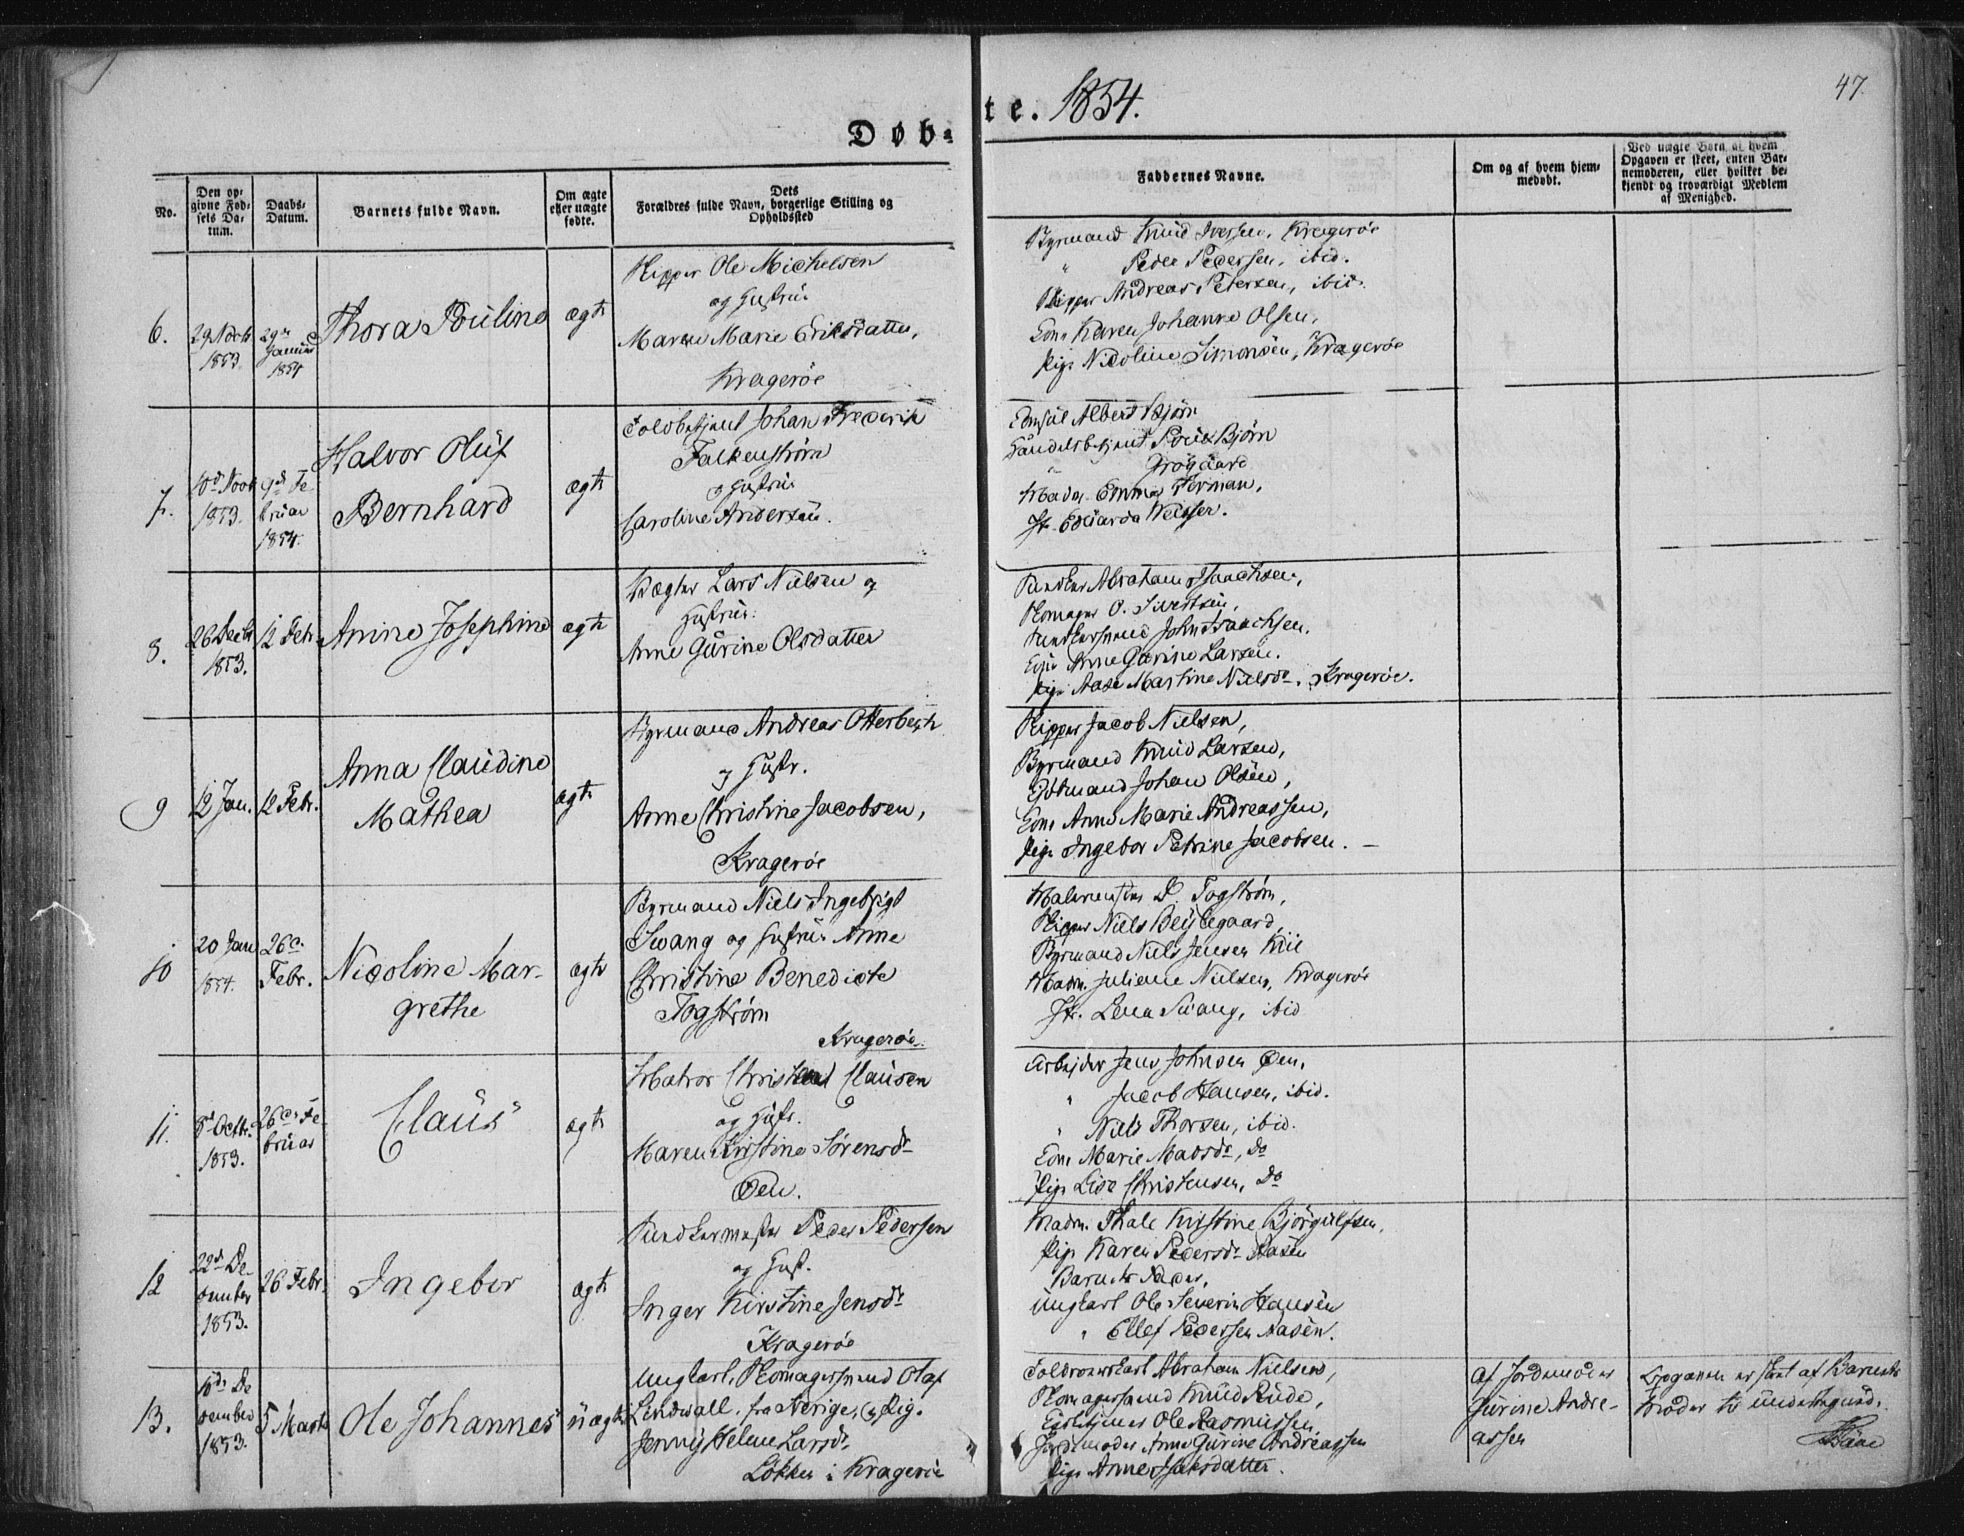 47.
Døbte. 1854.
No.
Den opgivne Fødsels Datum.
Daabs-Datum.
Barnets fulde Navn.
Om ægte eller uægte fødte.
Dets Forældres fulde Navn, borgerlige Stilling og Opholdssted
Faddernes Navne.
Om og af hvem hjemmedøbt.
Ved uægte Børn af hvem Opgaven er skeet, enten Barnemoderen, eller hvilket bekjendt og troværdigt Medlem af Menighed.
6.
1853.
29de
Januar
1854
Thora Pouline
ægte
Skipper Ole Michelsen
og Hustrue
Maren Marie Eriksdatter,
Kragerøe
Byrmand Knud Iversen, Kragerøe
" Peder Pedersen, ibid.
Skipper Andreas Petersen, ibid.
Karen Johanne Olsen,
Pige Nicoline Simonsen, Kragerøe
7.
10de Novb
1853.
9de Fe-
bruar
1854.
Halvor Oluf
Bernhard
ægte
Toldbetjent Johan Frederik
Falkenstrøm
og Hustrue
Caroline Andersen.
Consul Albert Bjørn
Handelsbetjent Poul Bjørn
" Grøgaard
Madm. Emma Herman,
Jfr. Eduarda Weisser.
8.
26 Decbr
1853.
12 Febr.
Anine Josephine
ægte
Vægter Lars Nielsen og
Hustrue:
Anne Gurine Olsdatter
Abraham Isaachsen,
O. Sivertsen,
John Isaachsen.
Anne Gurine Larsen.
Pige Aase Martine Nielsdr. Kragerøe.
9
12 Jan.
12 Febr.
Anna Claudine
Mathea
ægte
Byrmand Andreas Otterbech
og Hustr.
Anne Christine Jacobsen,
Kragerøe
Skipper Jacob Nielsen,
Byrmand Knud Larsen,
Johan Olsen,
Anne Marie Andreassen,
Pige Ingebor Petrine Jacobsen. —
10
20 Jan
1854.
26de
Febr.
Nicoline Mar-
grethe
ægte
Byrmand Niels Ingebrigt
Swang og Hustrue Anne
Christine Benedicte
Togstrøm
Kragerøe.
Malermester D. Togstrøm,
Skipper Niels Beylegaard,
Byrmand Niels Jensen Kiil
Madm. Juliane Nielsen, Kragerøe
Jfr. Lena Svang, ibid
11.
Octbr.
1853.
26de Fe-
bruar
Claus
ægte
Matros Christen Clausen
og Hustr.
Maren Kirstine Sørensdr
Øen.
Arbejder Jens Johnsen Øen.
" Jacob Hansen, ibid.
" Niels Thorsen, ibid.
Marie Madsdr, Do
Pige Lise Christensen, Do
12
22de De-
cember
1853.
26 Febr.
Ingebor
ægte
Peder Pedersen
og Hust.
Inger Kirstine Jensdr
Kragerøe
Madm. Thale Kirstine Bjørgulfsen,
Pige Karen Pedersdr Aasen
Barnets Fader,
Ungkarl Ole Severin Hansen
" Ellef Pedersen Aasen.
13.
De
cember
1853.
5 Marts
Ole Johannes
uægte
Ungkarl, Skomagersvend Olaf
Lindwall, fra Sverige, og Pig.
Jenny Helene Larsdr
Løkken i Kragerøe
Abraham Nielsen,
Skomagersvend Knud Rude,
Ole Rasmussen
Jordemoder Anne Gurine Andreassen
Pige Anne Isaksdatter.
af Jordemoder
Gurine Andre-
assen
Opgaven er skeet af Barnets
Moder til undertegnede.